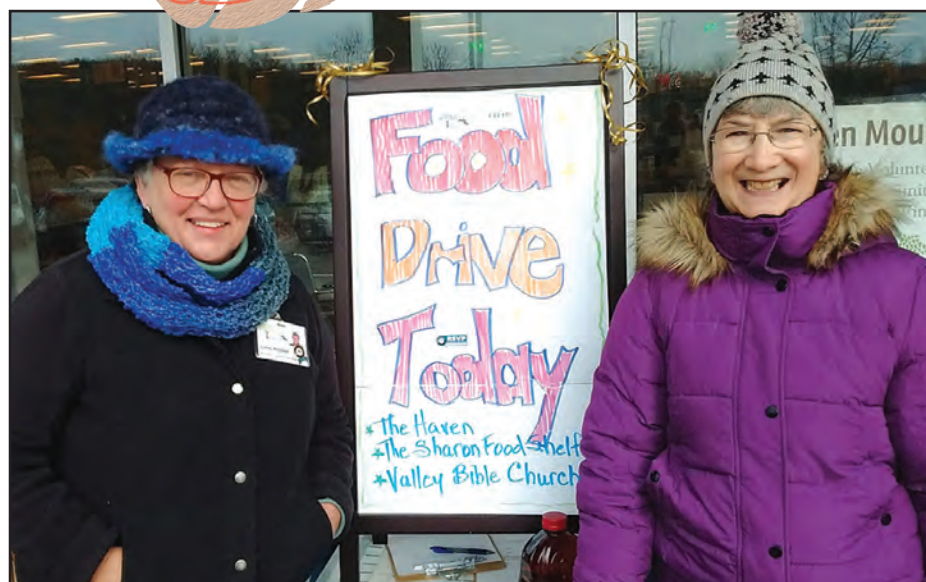 Food
Drive
Today
RSVP
*The Haven
*The Sharon Food Shelf
*Valley Bible Church
en Mou
Volunte